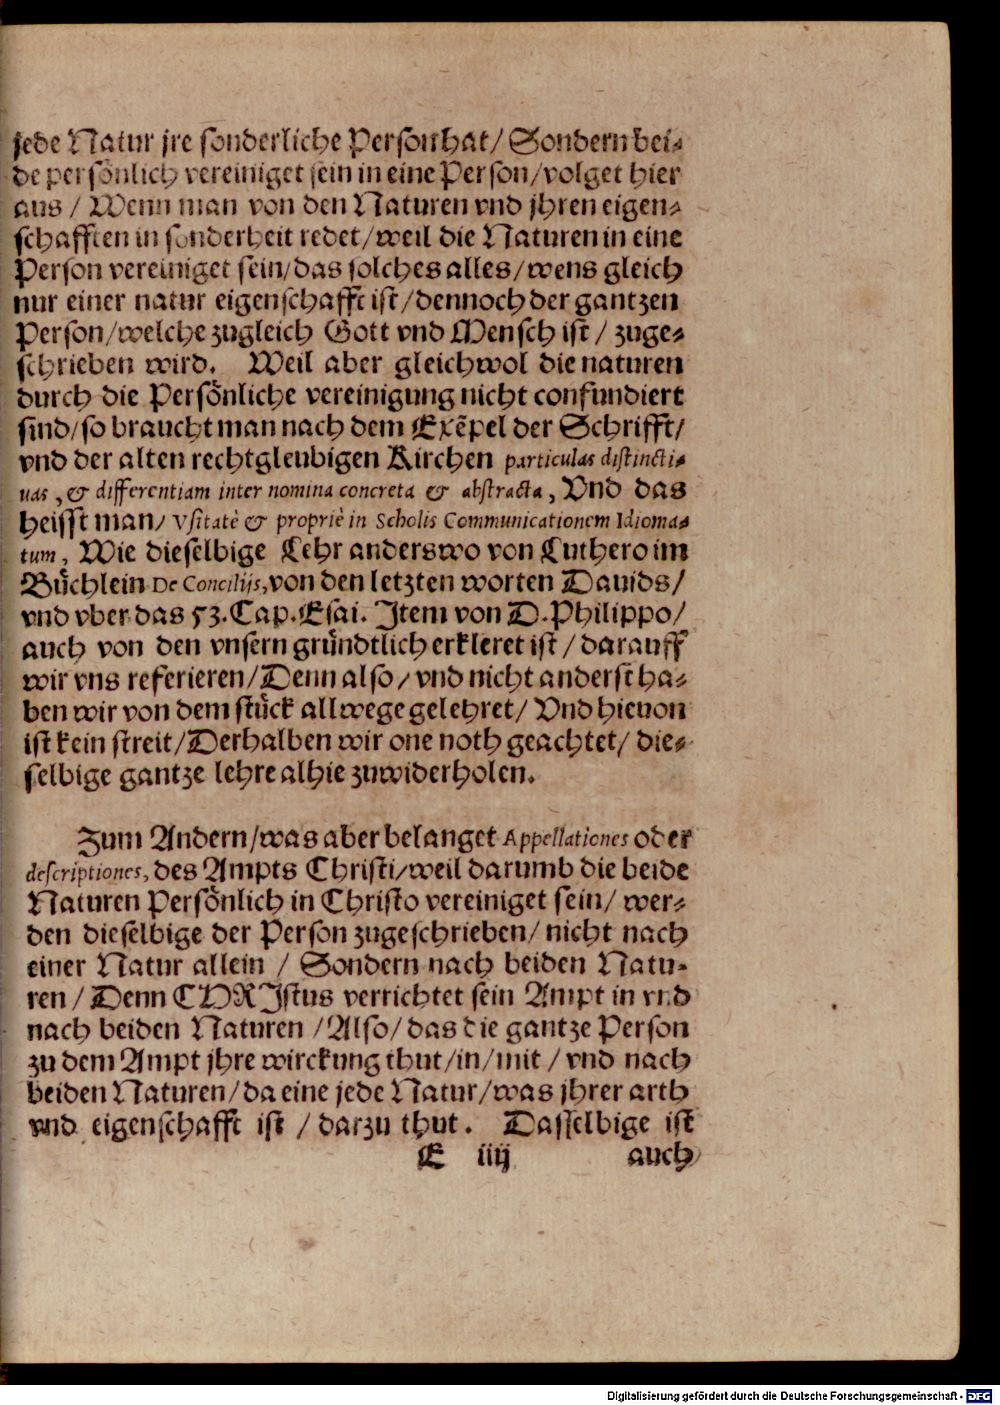 jede Natur jre sonderliche Person hat/ Sondern bei⸗
de persönlich vereiniget sein in eine Person/volget hier
aus / Wenn man von den Naturen vnd jhren eigen⸗
schafften in sonderheit redet/weil die Naturen in eine
Person vereiniget sein/das solches alles/wens gleich
nur einer natur eigenschafft ist/dennoch der gantzen
Person/welche zugleich Gott vnd Mensch ist/ zuge⸗
schrieben wird. Weil aber gleichwol die naturen
durch die Persönliche vereinigung nicht confundiert
sind/so braucht man nach dem Exẽpel der Schrifft/
vnd der alten rechtgleubigen Kirchen particulas distincti⸗
uas, & differentiam inter nomina concreta & abstracta, Vnd das
heisst man/ Vsitatè & propriè in Scholis Communicationem Idioma⸗
tum, Wie dieselbige Lehr anderswo von Luthero im
Büchlein De Concilijs, von den letzten worten Dauids/
vnd vber das 53. Cap. Esai. Item von D. Philippo/
auch von den vnsern gründtlich erkleret ist/darauff
wir vns referieren/Denn also/vnd nicht anderst ha⸗
ben wir von dem stück allwege gelehret/ Vnd hieuon
ist kein streit/Derhalben wir one noth geachtet/ die⸗
selbige gantze lehre alhie zuwiderholen.
Zum Andern/was aber belanget Appellationes oder
descriptiones, des Ampts Christi/weil darumb die beide
Naturen Persönlich in Christo vereiniget sein/ wer⸗
den dieselbige der Person zugeschrieben/ nicht nach
einer Natur allein / Sondern nach beiden Natu⸗
ren / Denn CHRIstus verrichtet sein Ampt in vnd
nach beiden Naturen /Also/das die gantze Person
zu dem Ampt jhre wirckung thut/in/mit / vnd nach
beiden Naturen/da eine jede Natur/was jhrer arth
vnd eigenschafft ist / darzu thut. Dasselbige ist
E iiij auch
Digitalisierung gefördert durch die Deutsche Forschungsgemeinschaft - DFG